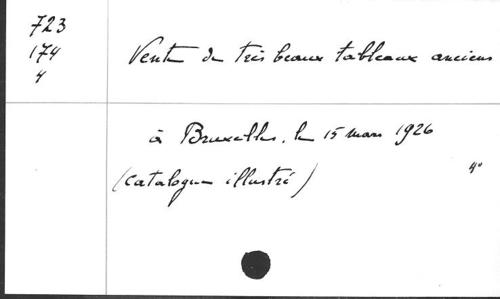 723
174
4
Vente de très beaux tableaux anciens
à Bruxelles, le 15 mars 1926
(catalogue illustré)
4°